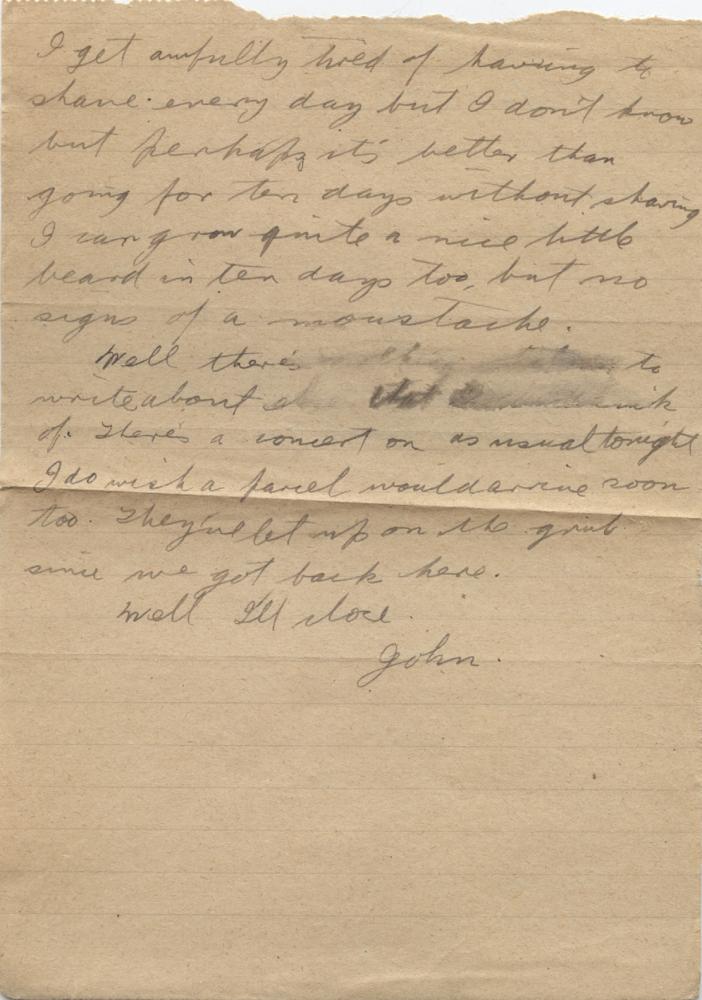 I get awfully tired of having to
shave every day but I don't know
but perhaps it's better than
going for ten days without shaving
I can grow quite a nice little
beard in ten days too, but no
signs of a moustache.
Well there's to
write about that
of. There's a concert on as usual tonight
I do wish a parcel would arrive soon
too. They've let up on the grub
since we got back here.
Well I'll close.
John.